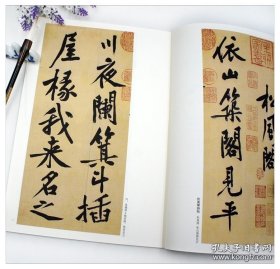 松風閣
依山築閣見平
川夜闌箕斗插
屋椽我来名之
孔夫子旧书网